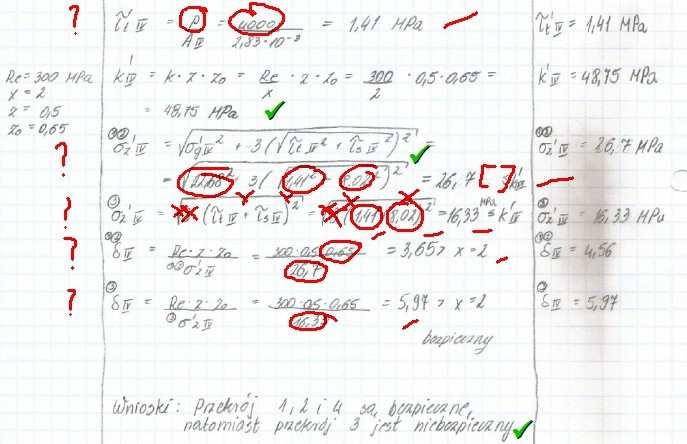 ? τ̃t IV = P / A IV = 4000 / 2,83·10⁻³ = 1,41 MPa τ̃t'IV = 1,41 MPa
Re = 300 MPa k'IV = k · z · z₀ = Re / x · z · z₀ = 300 / 2 · 0,5 · 0,65 = k'IV = 48,75 MPa
x = 2
z = 0,5 = 48,75 MPa ✓
z₀ = 0,65
? σz'IV = √σg'IV² + 3(√τ̃t IV² + τ̃s IV²)² = ✓ σz'IV = 26,7 MPa
= √22,68² + 3(√1,41² + 8,02²)² = 26,7 [ ] ≤ k'IV
? σz'IV = (τ̃t IV + τ̃s IV)² = (1,41 8,02)² = 16,33 MPa ≤ k'IV σz'IV = 16,33 MPa
? δIV = Re · z · z₀ / σz'IV = 300·0,5·0,65 / 26,7 = 3,65 > x = 2 δIV = 4,56
? δIV = Re · z · z₀ / σz'IV = 300·0,5·0,65 / 16,33 = 5,97 > x = 2 δIV = 5,97
bezpieczny
Wnioski: Przekrój 1, 2 i 4 są bezpieczne,
natomiast przekrój 3 jest niebezpieczny ✓